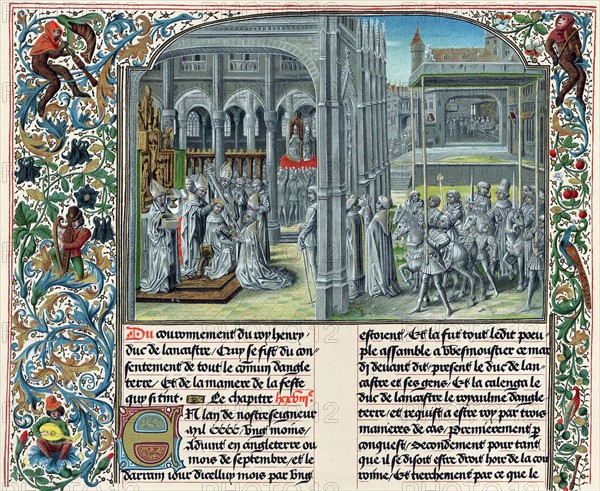 Du couronnement du roy henry
duc de lancastre / Quy se fist du con-
sentement de tout le comun dangle
terre / Et de la maniere de la feste
quy si tint. Le chapitre
En lan de nostre seigneur
mil CCCC / Ung moins /
Adunt en angleterre ou
mois de septembre / et le
darrain iour dicelluy mois par ung
estoient / Et la fut tout ledit peu-
ple assamble a wesmoustier ce mar
dj deuant dit / present le duc de lan-
castre et ses gens / Et la calenga le
duc de lancastre le royaulme dangle
terre / et requist a estre roy par trois
manieres de cas / Premierement p
conquest / Secondement pour tant
que il se disoit estre droit hoir de la cou
ronne / Et tierchement par ce que le